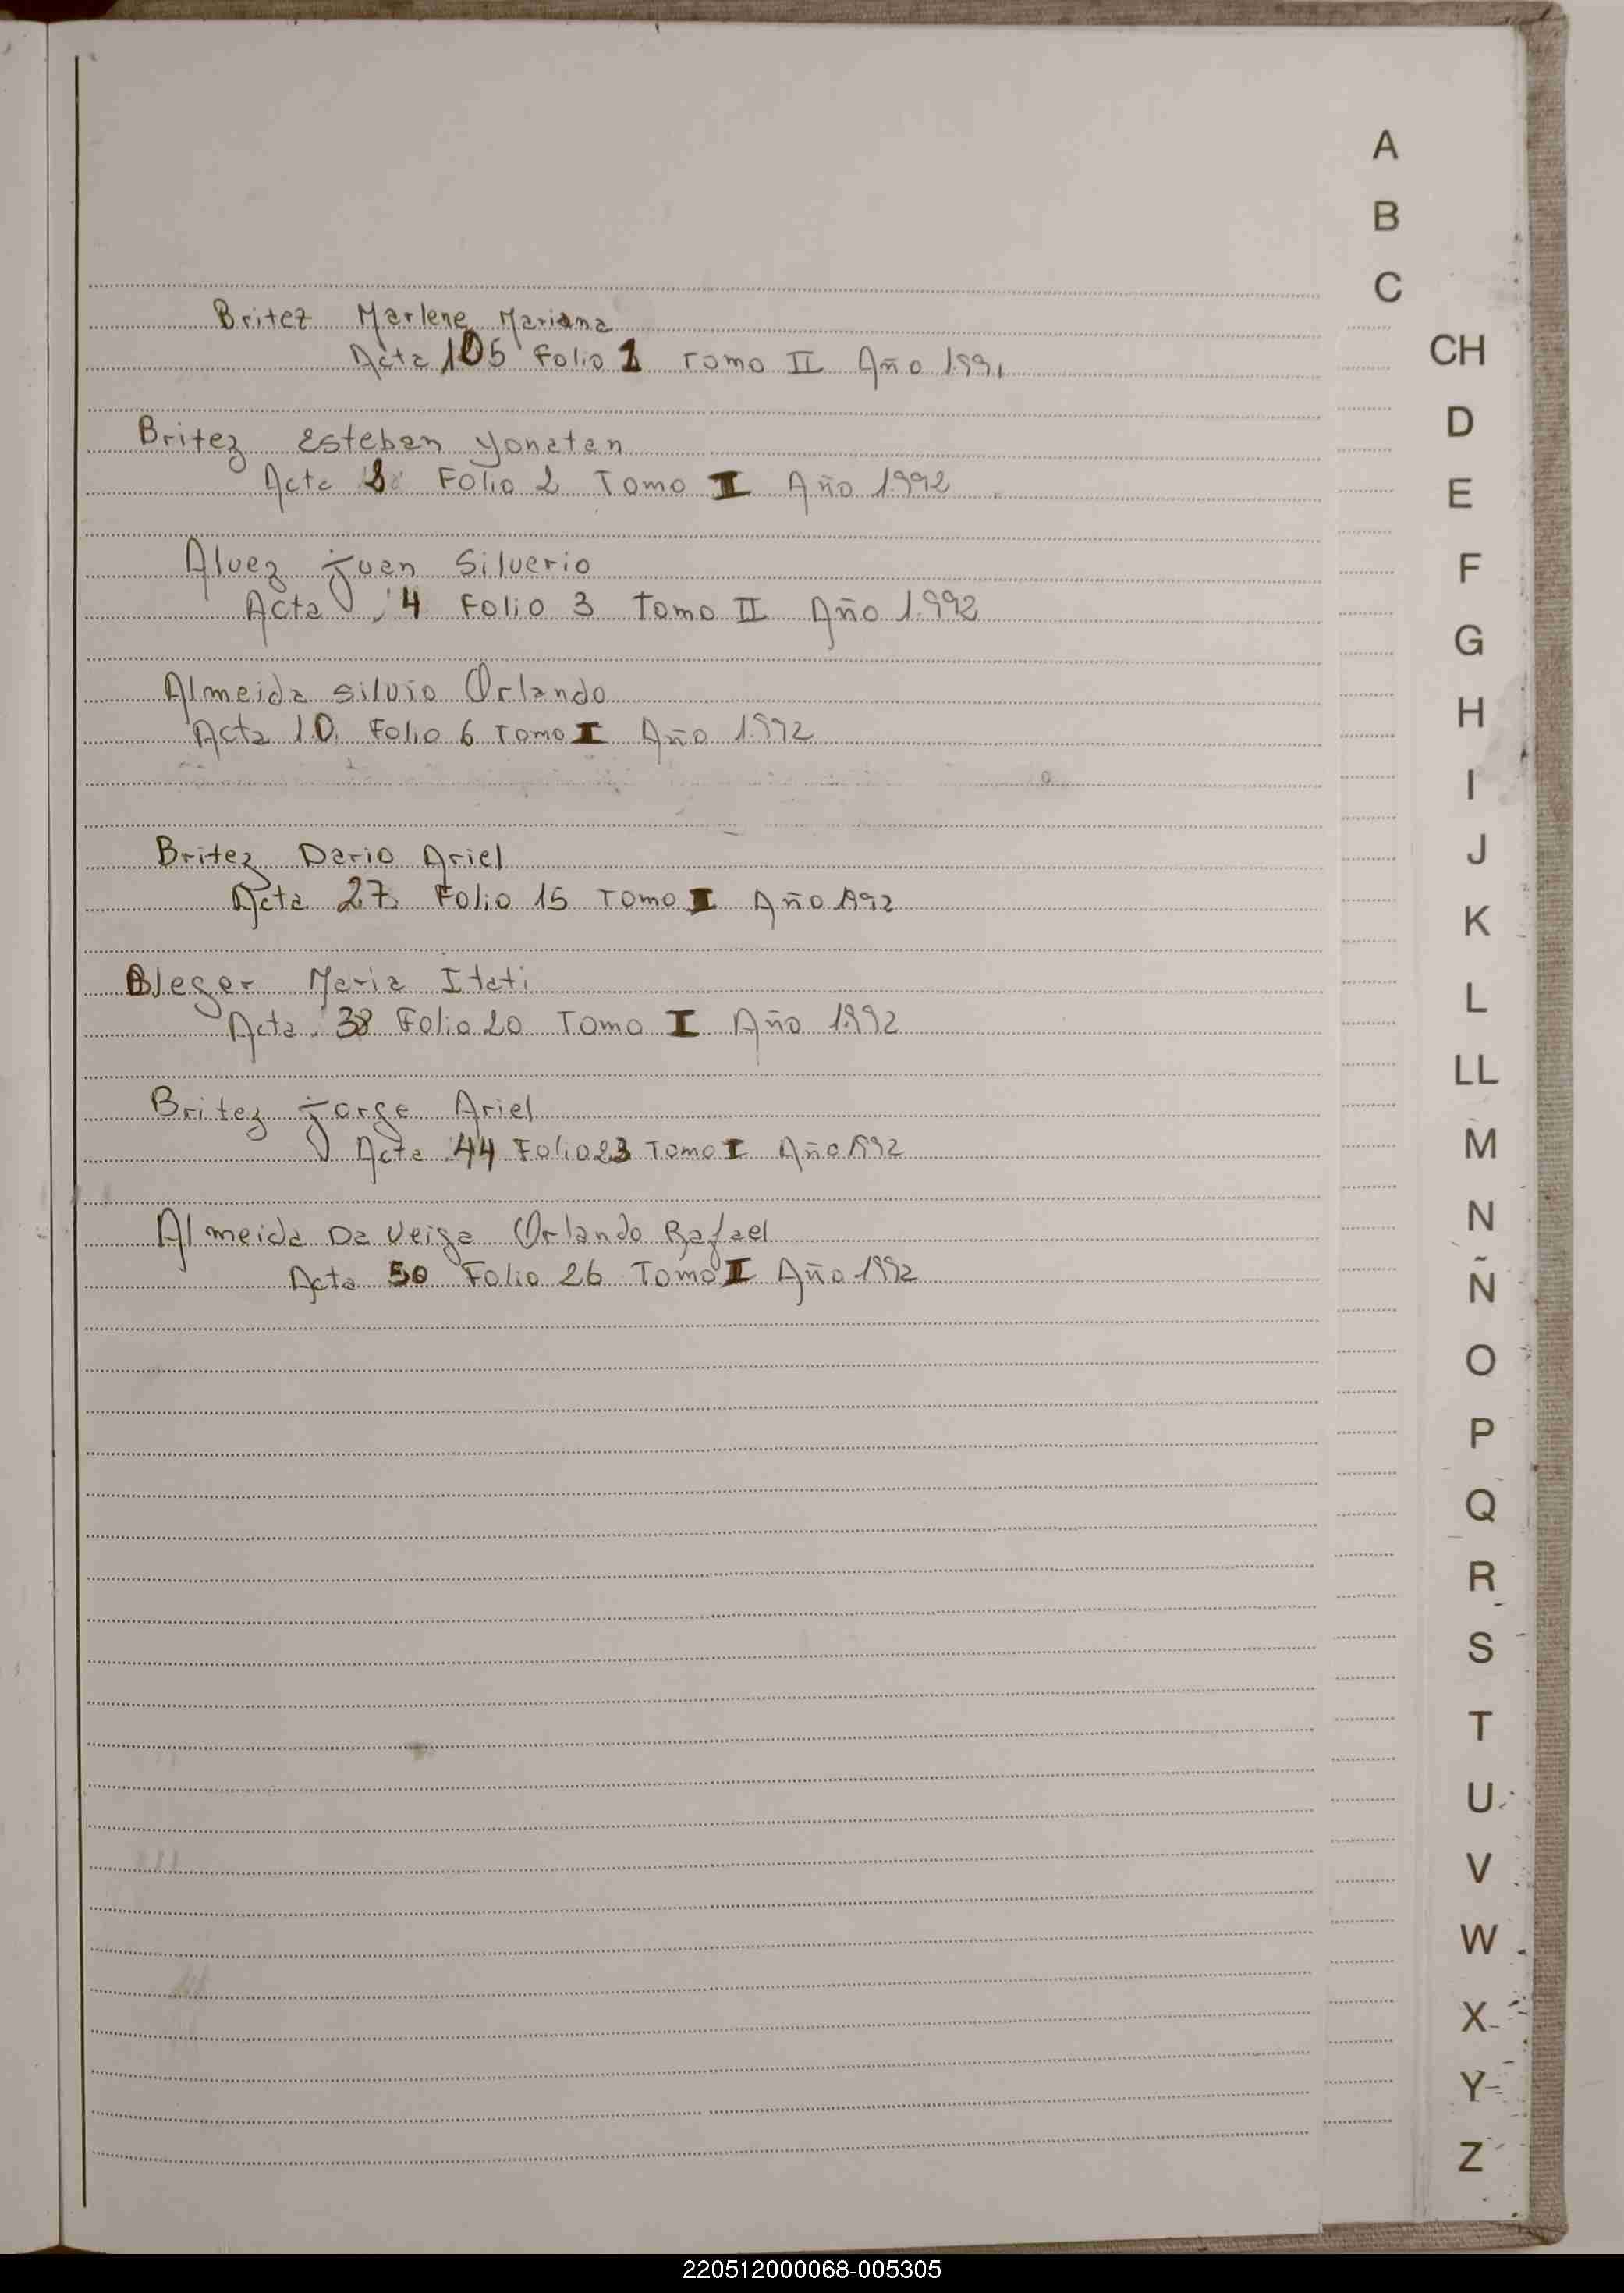 Britez Marlene Mariana
Acta 105 Folio 1 Tomo II Año 1.991
Britez Esteban Yonatan
Acta 8 Folio 2 Tomo I Año 1.992
Alvez Juan Silverio
Acta 4 Folio 3 Tomo II Año 1.992
Almeida Silvio Orlando
Acta 10 Folio 6 Tomo I Año 1.992
Britez Dario Ariel
Acta 27 Folio 15 Tomo I Año 1992
Bleger Maria Itati
Acta 38 Folio 20 Tomo I Año 1.992
Britez Jorge Ariel
Acta 44 Folio 23 Tomo I Año 1992
Almeida Da Veiga Orlando Rafael
Acta 50 Folio 26 Tomo I Año 1992
A
B
C
CH
D
E
F
G
H
I
J
K
L
LL
M
N
Ñ
O
P
Q
R
S
T
U
V
W
X
Y
Z
220512000068-005305